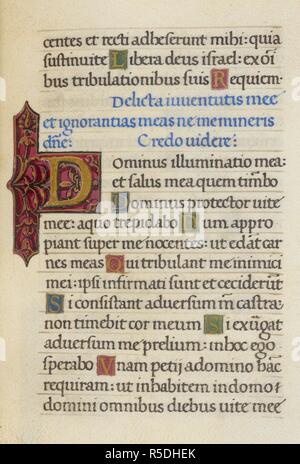 centes et recti adheserunt mihi: quia
sustinui te Libera deus israel: ex oi
bus tribulationibus suis Requiem.
Delicta iuventutis mee
et ignorantias meas ne memineris
dne: Credo videre:
Dominus illuminatio mea:
et salus mea quem timbo
Dominus protector vite
mee: a quo trepidabo Dum appro
piant super me nocentes: ut edat car
nes meas Qui tribulant me inimici
mei: ipsi infirmati sunt et ceciderut
Si consistant adversum me castra:
non timebit cor meum Si exugat
adversum me prelium: in hoc ego
sperabo Unam petij a domino hac
requiram: ut inhabitem in domo
domini omnibus diebus vite mee
alamy
Image ID: R5DHEK
www.alamy.com